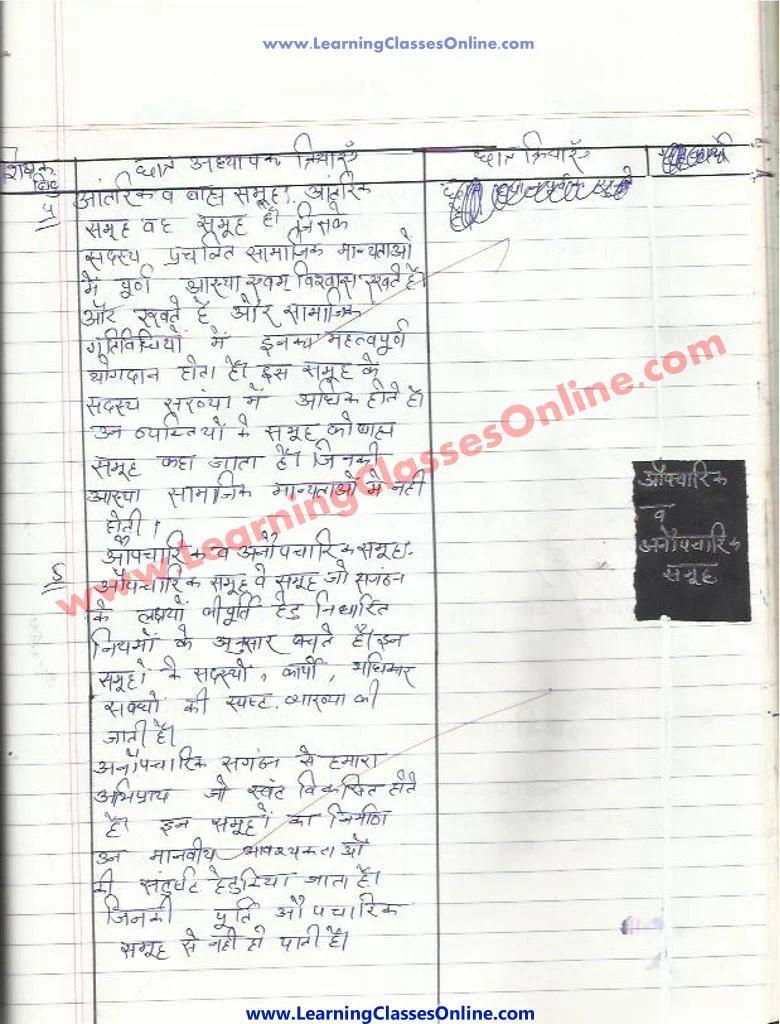 www.LearningClassesOnline.com
शिक्षण बिंदु
छात्र अध्यापक क्रियाएँ
छात्र क्रियाएँ
4
आंतरिक व बाह्य समूह:. आंतरिक
समूह वह समूह है। जिसके
सदस्य प्रचलित सामाजिक मान्यताओ
में पूर्ण आस्था एवंम विश्वास रखते है।
और रखते है और सामाजिक
गतिविधियों में इनका महत्वपूर्ण
योगदान होता है। इस समूह के
सदस्य संख्या में अधिक होते है।
उन व्यक्तियों के समूह को बाह्य
समूह कहा जाता है। जिनकी
आस्था सामाजिक मान्यताओं मे नही
होती।
5
औपचारिक व अनौपचारिक समूह:.
औपचारिक समूह वे समूह जो संगठन
के लक्ष्यों की पूर्ति हेतु निर्धारित
नियमों के अनुसार बनते है। इन
समूहो के सदस्यों, कार्यो, अधिकार
सबधों की स्पष्ट व्याख्या की
जाती है।
अनौपचारिक सगंठन से हमारा
अभिप्राय जो स्वंत विकसित होते
है। इन समूहों का निर्माण
उन मानवीय आवश्यकताओं
की संतुष्टि हेतु किया जाता है।
जिनकी पूर्ति औपचारिक
समूह से नही हो पाती है।
औपचारिक
व
अनौपचारिक
समूह
www.LearningClassesOnline.com
www.LearningClassesOnline.com